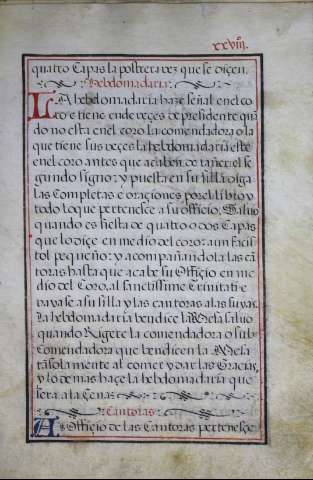 xxviij.
quatro Capas la postrera vez que se diçen.
Hebdomadaria
LA hebdomadaria haze señal en el co
ro e tiene en de veçes de presidente quā
do no esta en el coro la comendadora o la
que tiene sus veçes la hebdomadaria este
en el coro antes que acaben de tañer el se
gundo signo: y puesta en su silla diga
las Completas e oraçiones por el libro y
todo lo que pertenece a su officio, Saluo
quando es fiesta de quatro o dos Capas
que lo diçe en medio del coro: a un facis
tol pequeño: y acompañandola las cā
toras hasta que acabe su Offiçio en me
dio del Coro, al sanctissime Trinitati e
vayase a su silla y las cantoras a las suyas.
La hebdomadaria bendice la Mesa saluo
quando Rigere la comendadora o sub
Comendadora que bendicen la Mesa
tā sola mente al comer y dar las Graçias,
y lo de mas haçe la hebdomadaria que
sera a la Cena
Cantoras
Al Offiçio de las Cantoras perteneçe